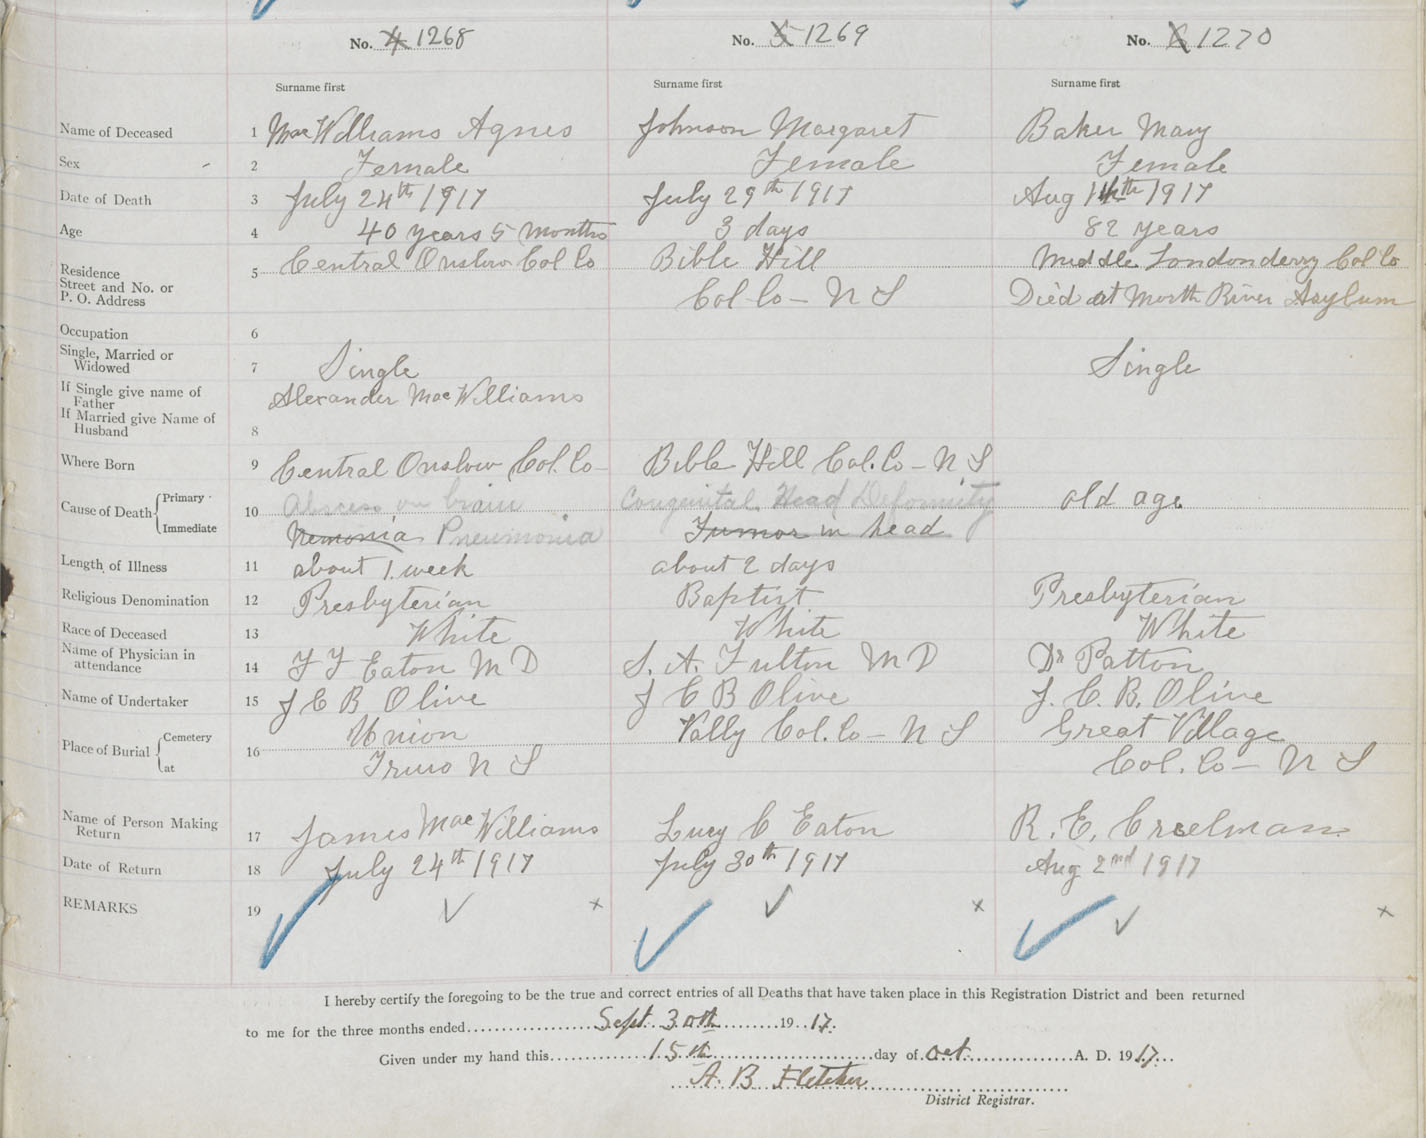 No. 4 1268 No. 5 1269 No. 6 1270
Surname first Surname first Surname first
Name of Deceased 1 MacWilliams Agnes Johnson Margaret Baker Mary
Sex 2 Female Female Female
Date of Death 3 July 24th 1917 July 29th 1917 Aug 1th 1917
Age 4 40 years 5 months 3 days 82 years
Residence
Street and No. or
P. O. Address
5 Central Onslow Col Co Bible Hill Middle Londonderry Col Co
Col Co - N S Died at North River Asylum
Occupation 6
Single, Married or
Widowed
7 Single Single
If Single give name of
Father
Alexander MacWilliams
If Married give Name of
Husband
8
Where Born 9 Central Onslow Col. Co- Bible Hill Col. Co - N S
Cause of Death { Primary Immediate 10 Abscess on brain Congenital Head Deformity old age
Nemonia Pneumonia Tumor in head
Length of Illness 11 about 1 week about 2 days
Religious Denomination 12 Presbyterian Baptist Presbyterian
Race of Deceased 13 White White White
Name of Physician in
attendance
14 F F Eaton M D S. A. Fulton M D Dr Patton
Name of Undertaker 15 J C B Olive J C B Olive J. C. B. Olive
Place of Burial { Cemetery at 16 Union Vally Col. Co - N S Great Village
Truro N S Col. Co - N S
Name of Person Making
Return
17 James MacWilliams Lucy C Eaton R. E. Creelman
Date of Return 18 July 24th 1917 July 30th 1917 Aug 2nd 1917
REMARKS 19 ✓ x ✓ x ✓ x
I hereby certify the foregoing to be the true and correct entries of all Deaths that have taken place in this Registration District and been returned
to me for the three months ended Sept 30th 1917.
Given under my hand this 15th day of Oct A. D. 1917
A. B Fletcher
District Registrar.